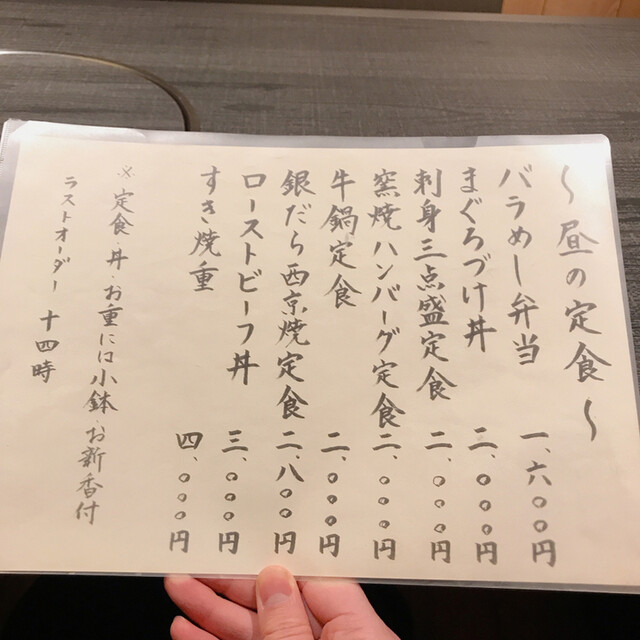 ～昼の定食～
バラめし弁当 一、六〇〇円
まぐろづけ丼 二、〇〇〇円
刺身三点盛定食 二、〇〇〇円
窯焼ハンバーグ定食 二、〇〇〇円
牛鍋定食 二、〇〇〇円
銀だら西京焼定食 二、八〇〇円
ローストビーフ丼 三、〇〇〇円
すき焼重 四、〇〇〇円
※定食・丼・お重には小鉢・お新香付
ラストオーダー 十四時